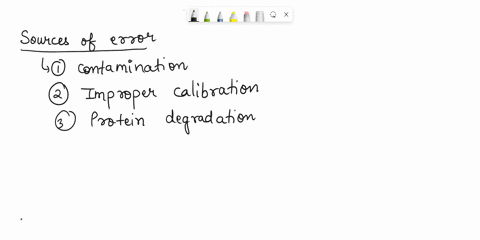 Sources of error
↳ ① contamination
② Improper calibration
③ Protein degradation